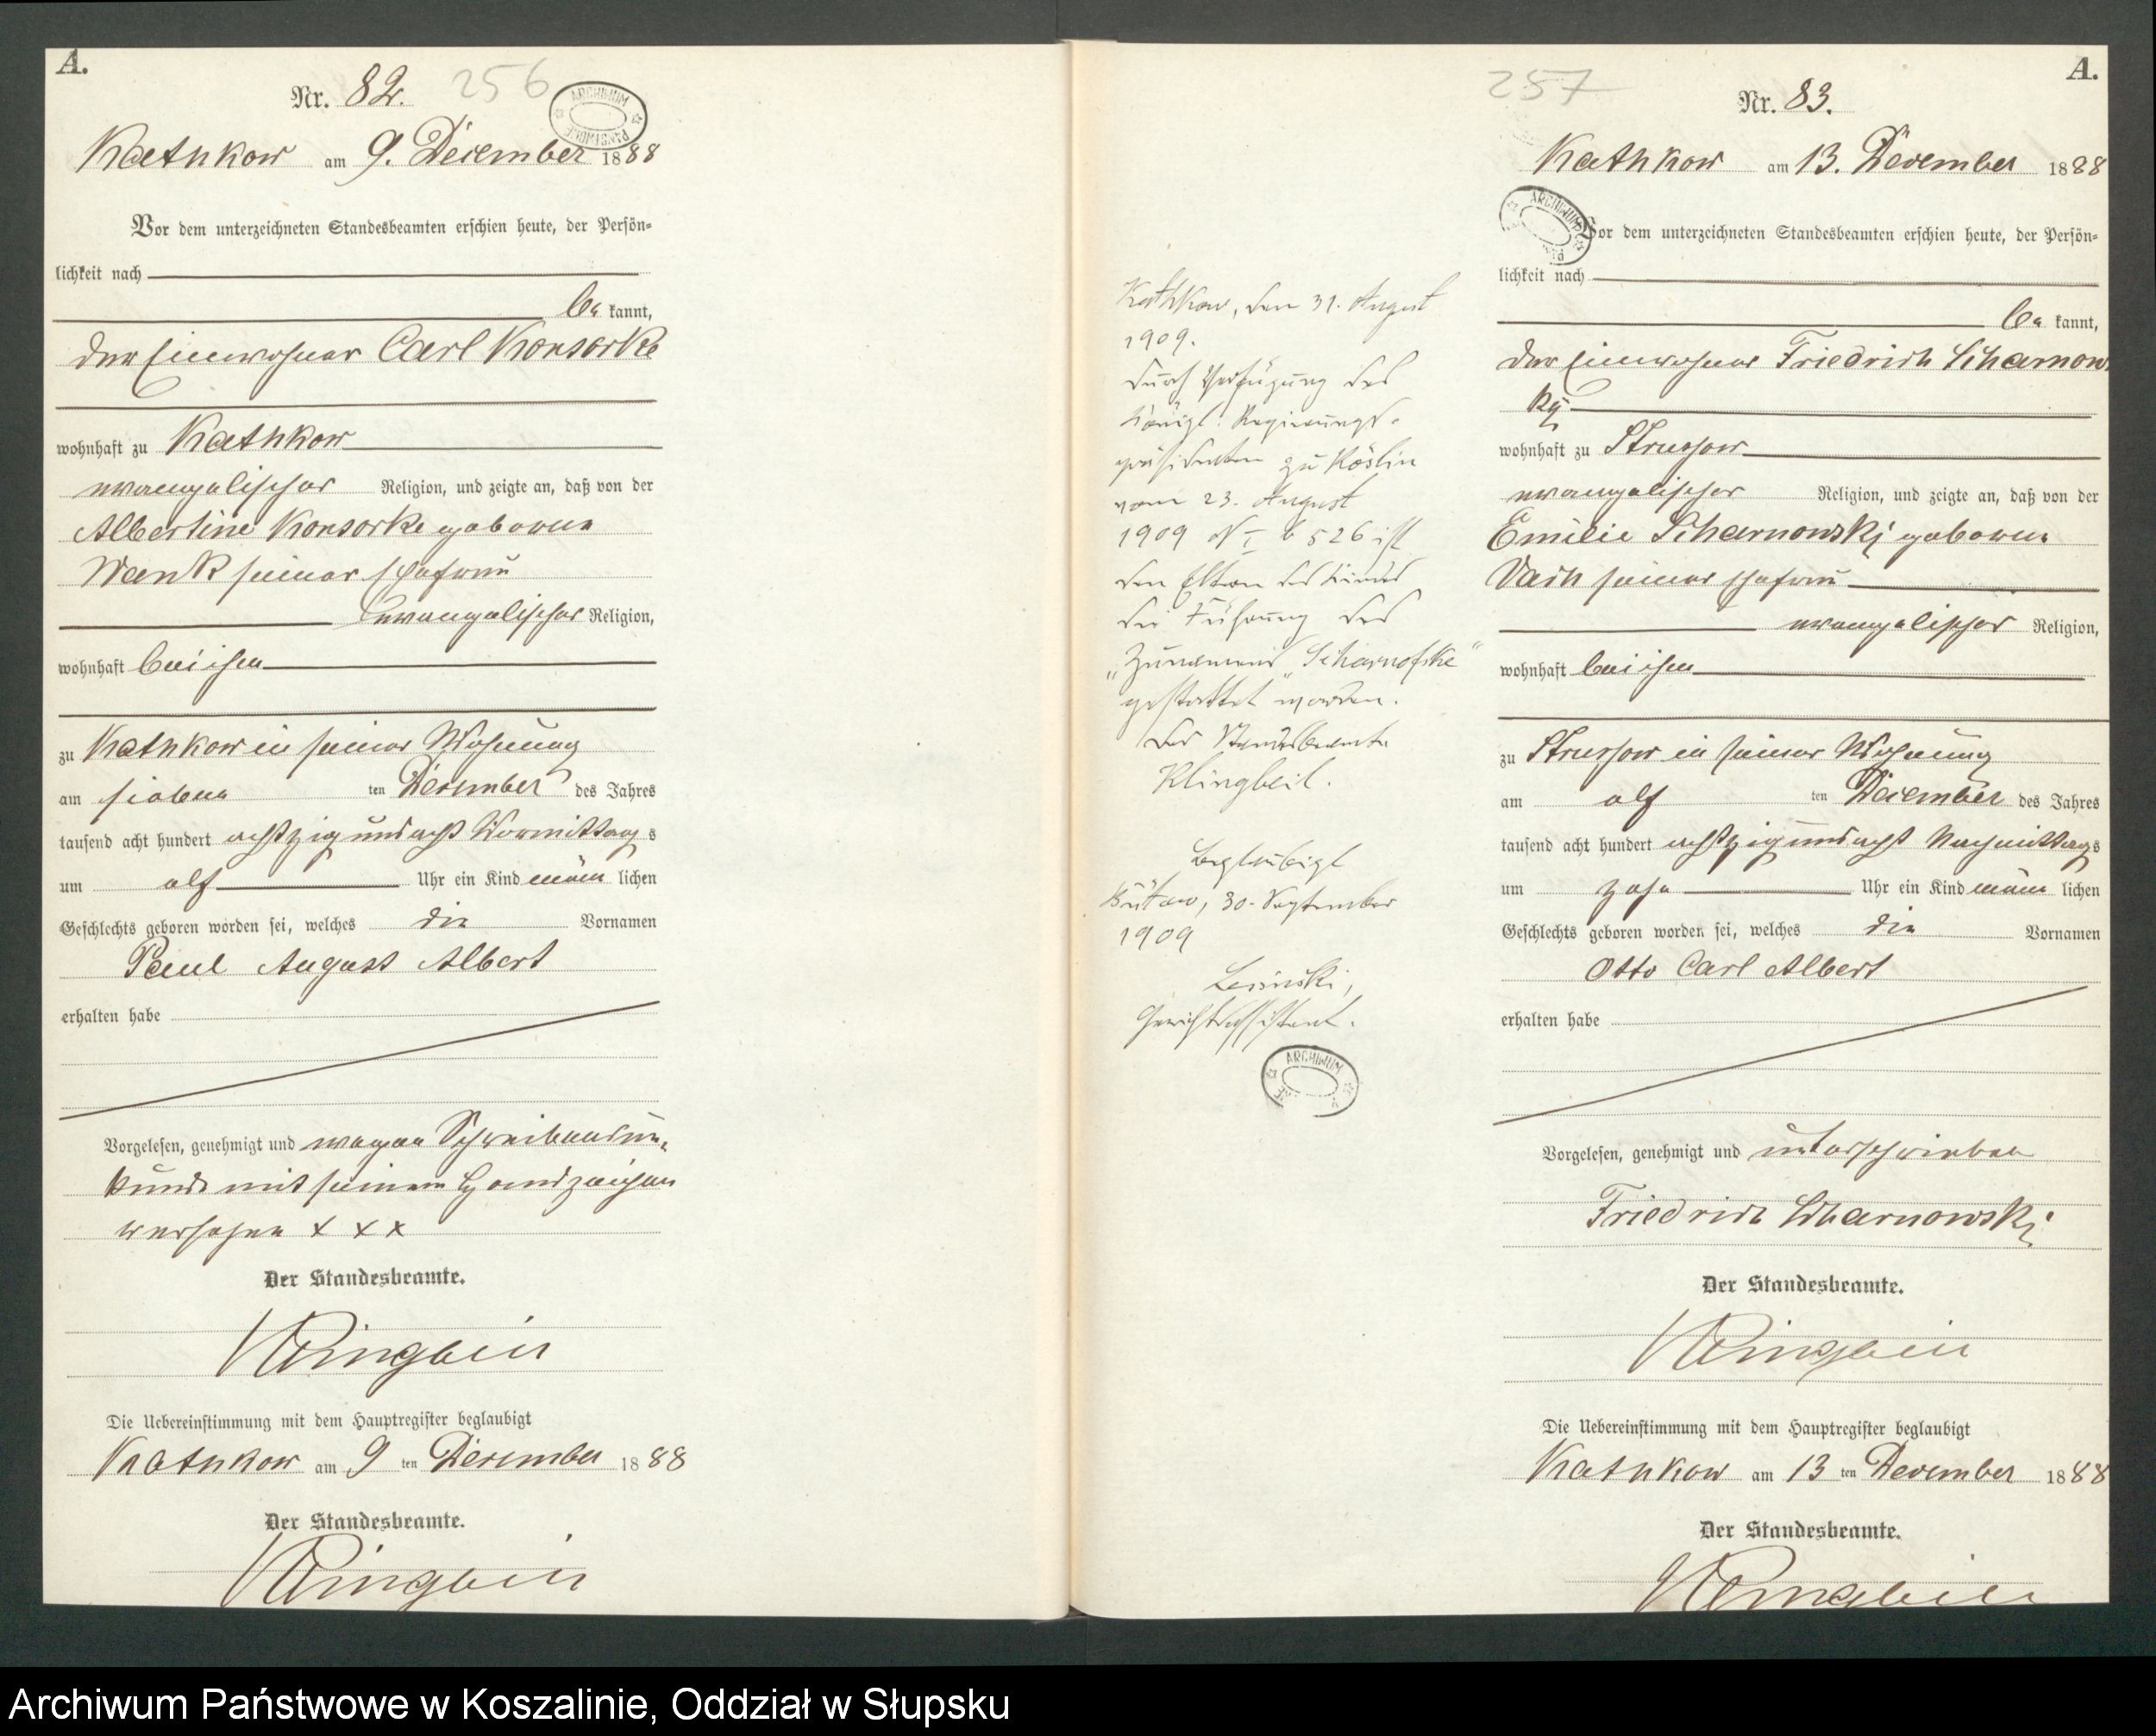 A.
Nr. 82.
256
ARCHIWUM PAŃSTWOWE
Kathkow am 9. December 1888
Vor dem unterzeichneten Standesbeamten erschien heute, der Persön-
lichkeit nach
be kannt,
der Einwohner Carl Konsorke
wohnhaft zu Kathkow
evangelischer Religion, und zeigte an, daß von der
Albertine Konsorke geborene
Wank seiner Ehefrau
evangelischer Religion,
wohnhaft bei ihm
zu Kathkow in seiner Wohnung
am sieben ten December des Jahres
tausend acht hundert achtzig und acht Vormittag s
um elf Uhr ein Kind männ lichen
Geschlechts geboren worden sei, welches die Vornamen
Paul August Albert
erhalten habe
Vorgelesen, genehmigt und wegen Schreibensun-
kunde mit seinem Handzeichen
versehen x x x
Der Standesbeamte.
Klingbeil
Die Uebereinstimmung mit dem Hauptregister beglaubigt
Kathkow am 9 ten December 1888
Der Standesbeamte.
Klingbeil
Kathkow, den 31. August
1909.
Durch Verfügung des
Königl. Regierungs-
präsidenten zu Köslin
vom 23. August
1909 N I b 526 ist
den Eltern des Kindes
die Führung des
Zunamens "Scharnofske"
gestattet worden.
Der Standesbeamte
Klingbeil.
Beglaubigt
Bütow, 30. September
1909
Gerichtsassistent.
ARCHIWUM
A.
257
Nr. 83.
Kathkow am 13. December 1888
ARCHIWUM
Vor dem unterzeichneten Standesbeamten erschien heute, der Persön-
lichkeit nach
be kannt,
der Einwohner Friedrich Scharnows
kij
wohnhaft zu Strussow
evangelischer Religion, und zeigte an, daß von der
Emilie Scharnowskj geborene
seiner Ehefrau
evangelischer Religion,
wohnhaft bei ihm
zu Strussow in seiner Wohnung
am elf ten December des Jahres
tausend acht hundert achtzig und acht Nachmittags
um zehn Uhr ein Kind männ lichen
Geschlechts geboren worden sei, welches die Vornamen
Otto Carl Albert
erhalten habe
Vorgelesen, genehmigt und unterschrieben
Friedrich Scharnowskj
Der Standesbeamte.
Klingbeil
Die Uebereinstimmung mit dem Hauptregister beglaubigt
Kathkow am 13 ten December 1888
Der Standesbeamte.
Klingbeil
Archiwum Państwowe w Koszalinie, Oddział w Słupsku